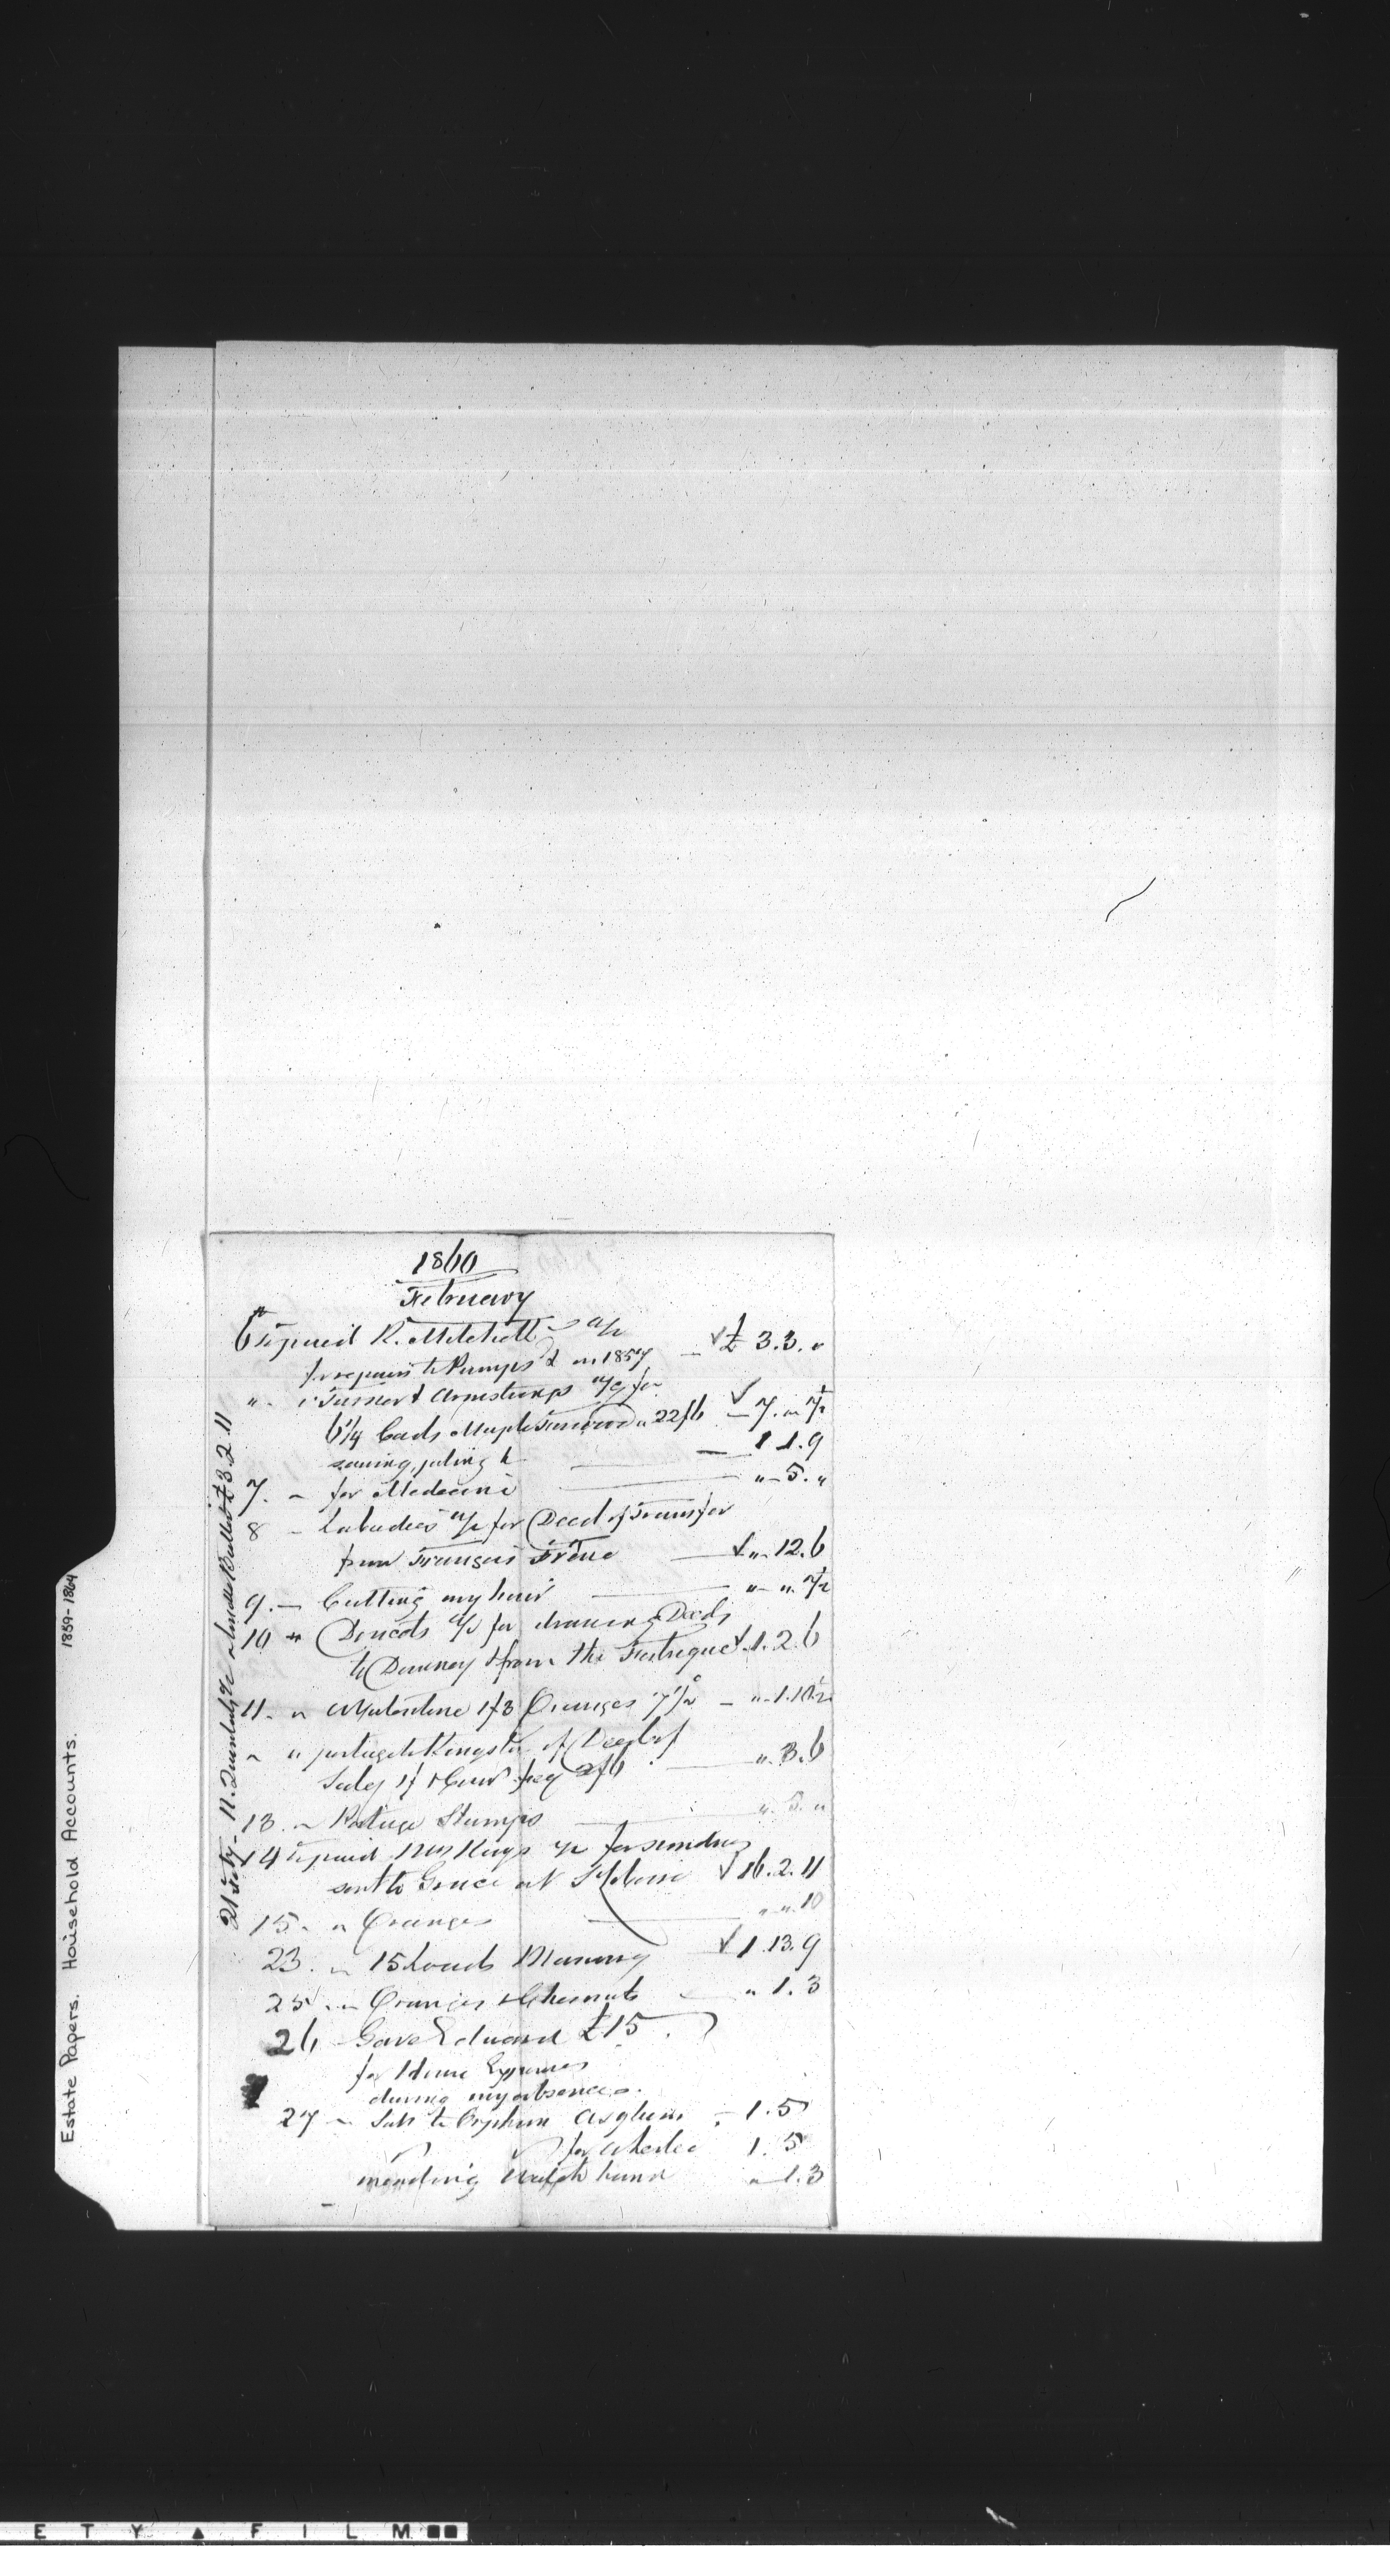 1860
February
6 To paid R. Mitchell's a/c
for repairs to Pumps &c in 1857 — £ 3.3.„
„ „ Turner & Armstrongs a/c for
6 1/4 Cords Maple Firewood a 22/6 — 7.„ 7 1/2
sawing, piling &c — 1.1.9
7. „ for Medecine „ 5. „
8 „ Labadies a/c for Deed of Transfer
from François Frène „ 12.6
9. — Cutting my hair — „ „ 7 1/2
10 „ Doucets a/c for drawing Deeds
to Downey & from the 1.2.6
11. „ 1/3 Oranges 7 1/2 — „ 1.10 1/2
„ „ postage to Kingston of Deed of
1/ & 2/6 — „ 3.6
13. „ Postage Stamps „ 5. „
14 To paid Kings a/c for sundries
sent to Grace at 16.2.11
15. „ Oranges „ „ 10
23. „ 15 Loads 1.13.9
25 „ Oranges & Chesnuts „ 1.3
26 Gave Edward £15
for House Expenses
during my absence.
27 „ Sub to Orphan Asylum 1.5
for 1.5
mending Watch hand „ 1.3
21 Feby. £3.2.11
Estate Papers. Household Accounts. 1859-1864
E T Y ▲ F I L M